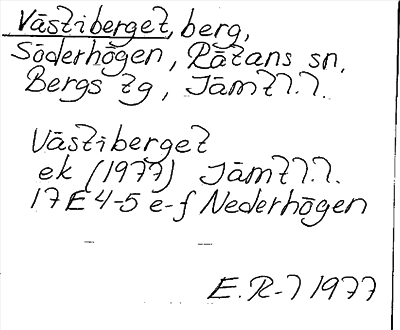 Västiberget, berg,
Söderhögen, Rätans sn,
Bergs tg, Jämtl.l.
Västiberget
ek (1977) Jämtl.l.
17E 4-5 e-f Nederhögen
E. R-l 1977